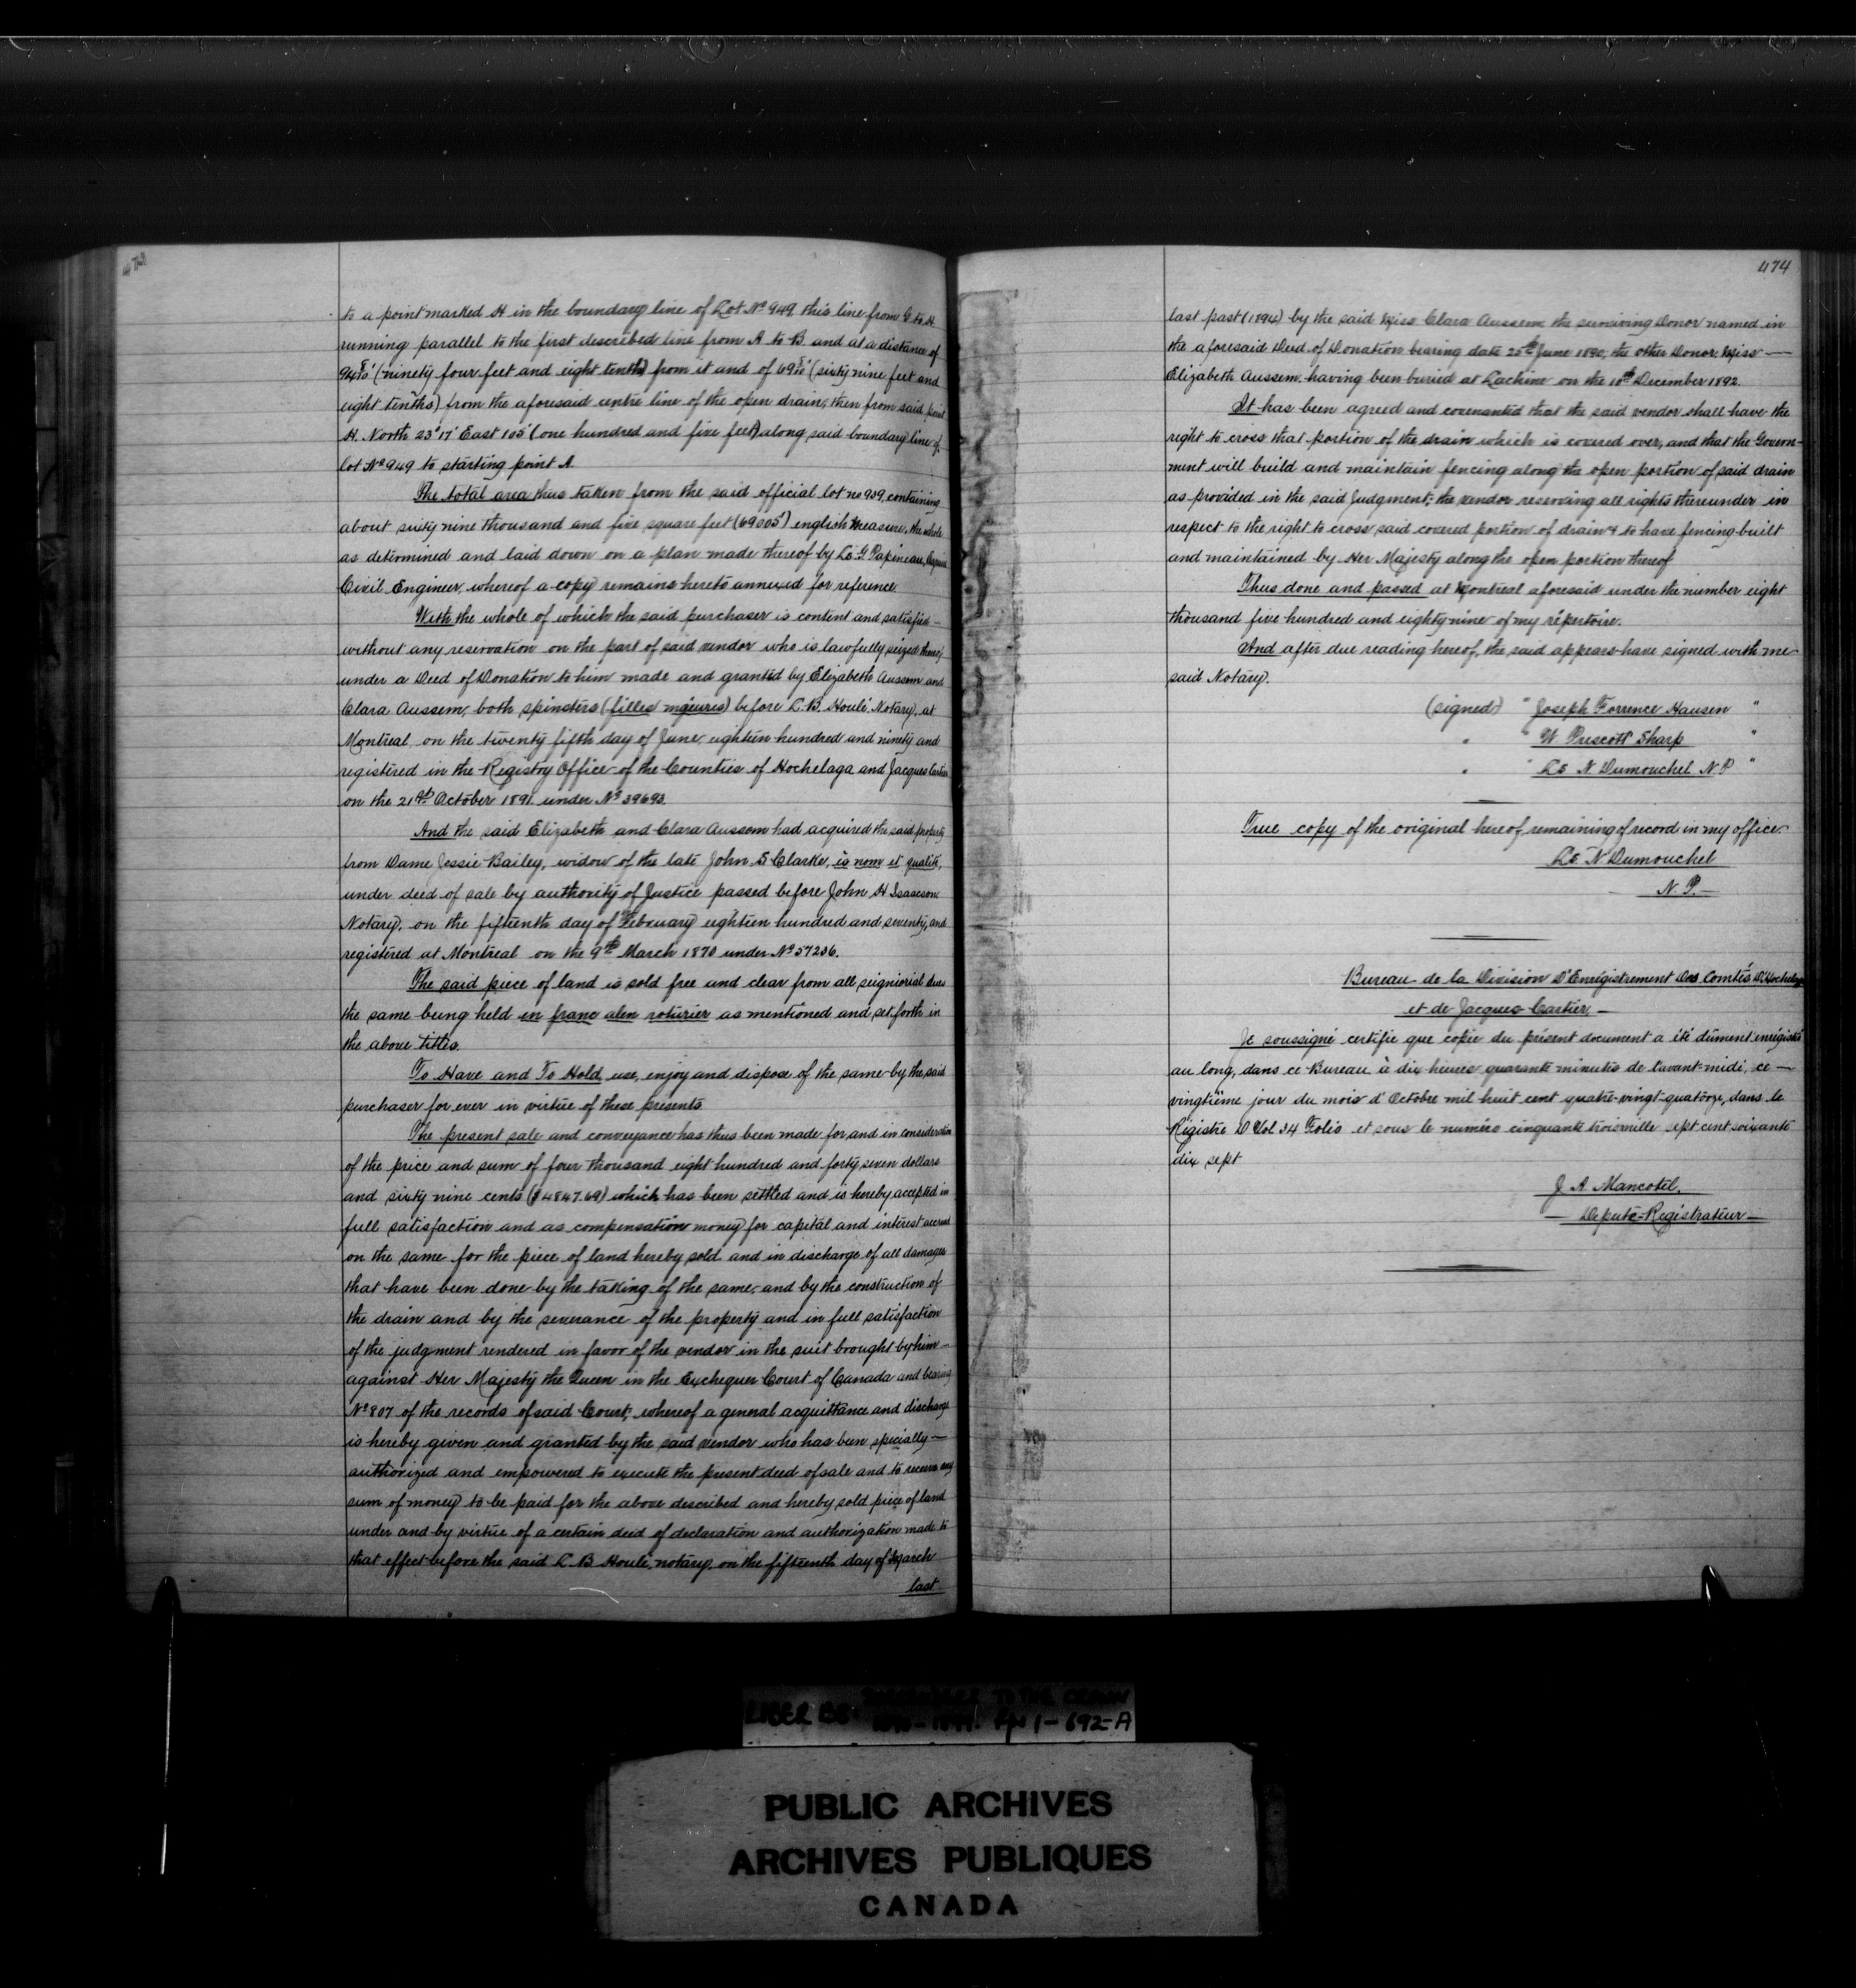 474
to a point marked H in the boundary line of Lot No 949 this line from G to H
running parallel to the first described line from A to B and at a distance of
94 8/10' (ninety four feet and eight tenths) from it and of 69 8/10' (sixty nine feet and
eight tenths) from the aforesaid centre line of the open drain, then from said point
H. North 23° 17' East 105' (one hundred and five feet) along said boundary line of
lot No 949 to starting point A.
The total area thus taken from the said official lot no 939, containing
about sixty nine thousand and five square feet (69005') english measure, the whole
as determined and laid down on a plan made thereof by Ls. G. Papineau,
Civil Engineer, whereof a copy remains hereto annexed for reference.
With the whole of which the said purchaser is content and satisfied—
without any reservation on the part of said vendor who is lawfully seized thereof
under a Deed of Donation to him made and granted by Elizabeth Aussem and
Clara Aussem, both spinsters (filles majeures) before L. B. Houlé Notary, at
Montreal on the twenty fifth day of June, eighteen hundred and ninety and
registered in the Registry Office of the Counties of Hochelaga and Jacques Cartier
on the 21st October 1891 under No 39693.
And the said Elizabeth and Clara Aussem had acquired the said property
from Dame Jessie Bailey, widow of the late John S Clarke, is nom et qualité,
under deed of sale by authority of Justice passed before John H Isaacson
Notary, on the fifteenth day of February eighteen hundred and seventy, and
registered at Montreal on the 9th March 1870 under No 57236.
The said piece of land is sold free and clear from all seigniorial dues
the same being held in franc alen roturier as mentioned and set forth in
the above titles.
To Have and To Hold, use, enjoy and dispose of the same by the said
purchaser for ever in virtue of these presents
The present sale and conveyance has thus been made for and in consideration
of the price and sum of four thousand eight hundred and forty seven dollars
and sixty nine cents ($4847.69) which has been settled and is hereby accepted in
full satisfaction and as compensation money for capital and interest accrued
on the same for the piece of land hereby sold and in discharge of all damages
that have been done by the taking of the same, and by the construction of
the drain and by the severance of the property and in full satisfaction
of the judgment rendered in favor of the vendor in the suit brought by him—
against Her Majesty the Queen in the Exchequer Court of Canada and bearing
No 807 of the records of said Court; whereof a general acquittance and discharge
is hereby given and granted by the said vendor who has been specially—
authorized and empowered to execute the present deed of sale and to receive any
sum of money to be paid for the above described and hereby sold piece of land
under and by virtue of a certain deed of declaration and authorization made to
that effect before the said L. B Houlé, notary, on the fifteenth day of March
last
last past (1894) by the said Miss Clara Aussem the surviving Donor named in
the aforesaid Deed of Donation bearing date 25th June 1890, the other Donor Miss —
Elizabeth Aussem, having been buried at Lachine on the 10th December 1892.
It has been agreed and covenanted that the said vendor shall have the
right to cross that portion of the drain which is covered over, and that the Govern-
ment will build and maintain fencing along the open portion of said drain
as provided in the said Judgment; the vendor reserving all rights thereunder in
respect to the right to cross said covered portion of drain & to have fencing built
and maintained by Her Majesty along the open portion thereof
Thus done and passed at Montreal aforesaid under the number eight
thousand five hundred and eighty nine of my répertoire.
And after due reading hereof, the said appears have signed with me
said Notary.
(signed) " Joseph Torrence Hausen "
" " W Prescott Sharp "
" " Ls N. Dumouchel N. P "
True copy of the original hereof remaining of record in my office
Ls N Dumouchel
N. P.—
Bureau de la Division D'Enrégistrement Des Comtés D'Hochelaga
et de Jacques-Cartier. —
Je soussigné certifie que copie du présent document a été dûment enrégistré
au long, dans ce Bureau à dix heures quarante minutes de l'avant-midi, ce —
vingtième jour du mois d'Octobre mil huit cent quatre-vingt-quatorze, dans le
Régistre D Vol 34 Folio et sous le numéro cinquante troismille sept cent soixante
dix sept
J A Mancotel.
— Deputé-Régistrateur —
LIBER BB TO THE CROWN
1-692-A
PUBLIC ARCHIVES
ARCHIVES PUBLIQUES
CANADA